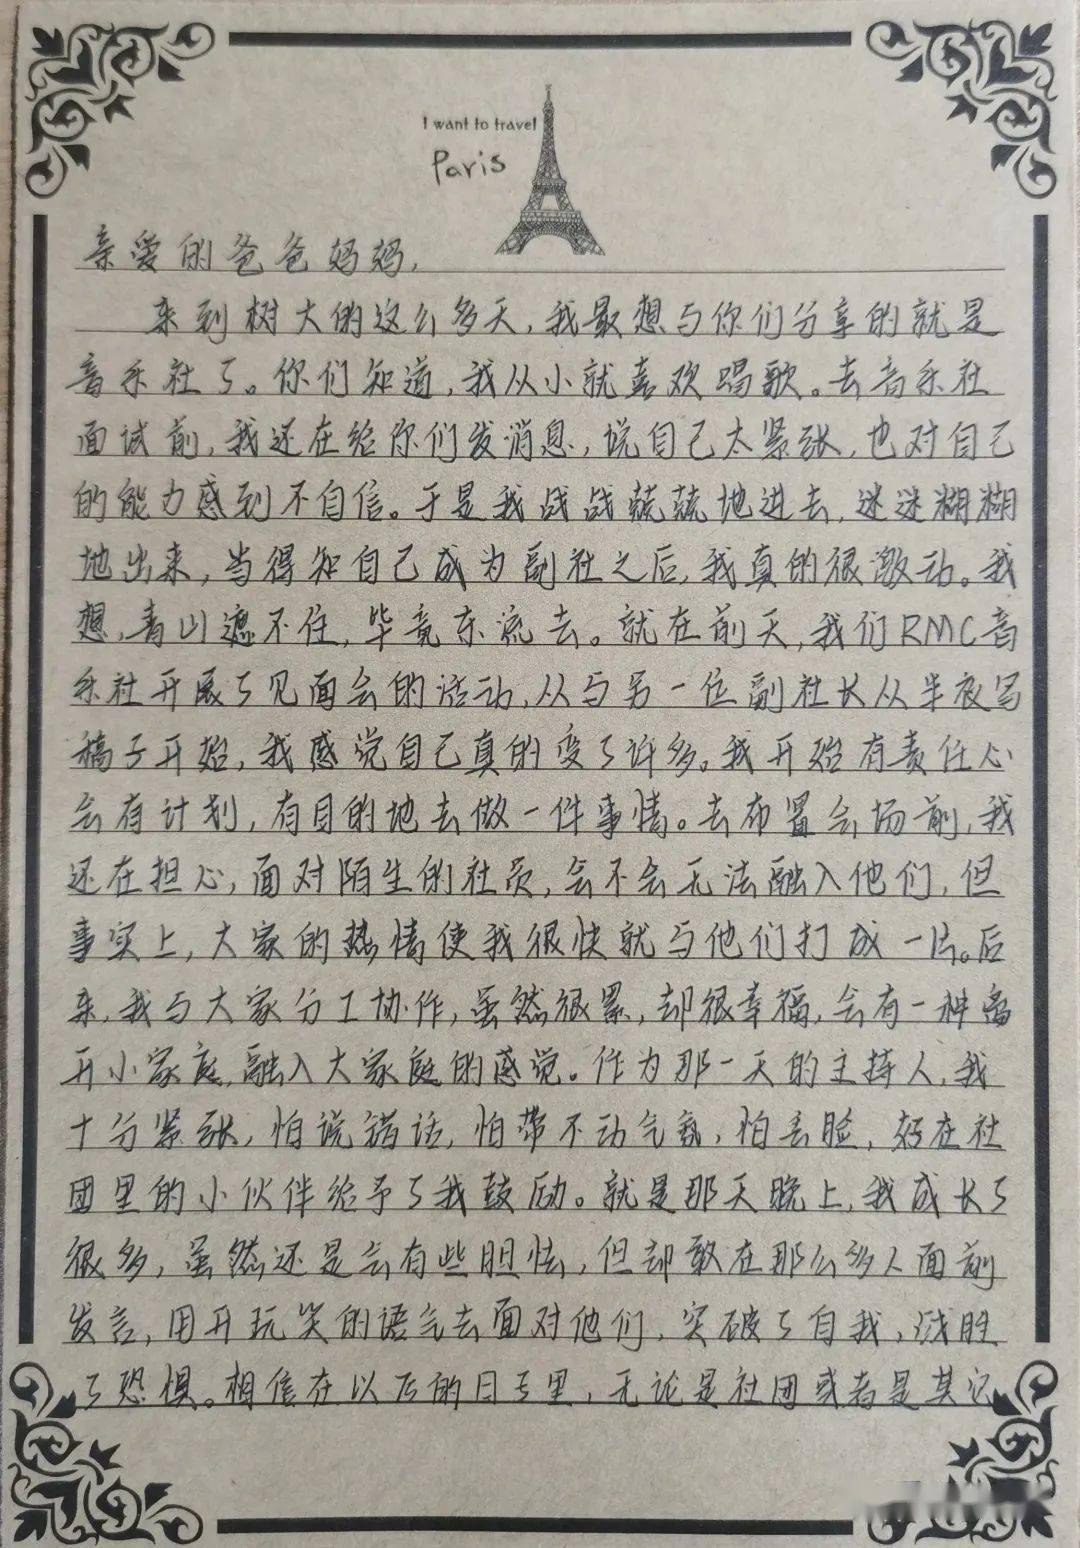 I want to travel
Paris
亲爱的爸爸妈妈,
来到树大的这么多天,我最想与你们分享的就是
音乐社了。你们知道,我从小就喜欢唱歌。去音乐社
面试前,我还在给你们发消息,说自己太紧张,也对自己
的能力感到不自信。于是我战战兢兢地进去,迷迷糊糊
地出来,当得知自己成为副社之后,我真的很激动。我
想,青山遮不住,毕竟东流去。就在前天,我们RMC音
乐社开展了见面会的活动,从与另一位副社长从半夜写
稿子开始,我感觉自己真的变了许多。我开始有责任心
会有计划,有目的地去做一件事情。去布置会场前,我
还在担心,面对陌生的社员,会不会无法融入他们,但
事实上,大家的热情使我很快就与他们打成一片。后
来,我与大家分工协作,虽然很累,却很幸福,会有一种离
开小家庭,融入大家庭的感觉。作为那一天的主持人,我
十分紧张,怕说错话,怕带不动气氛,怕丢脸,好在社
团里的小伙伴给予了我鼓励。就是那天晚上,我成长了
很多,虽然还是会有些胆怯,但却敢在那么多人面前
发言,用开玩笑的语气去面对他们,突破了自我,战胜
了恐惧。相信在以后的日子里,无论是社团或者是其它